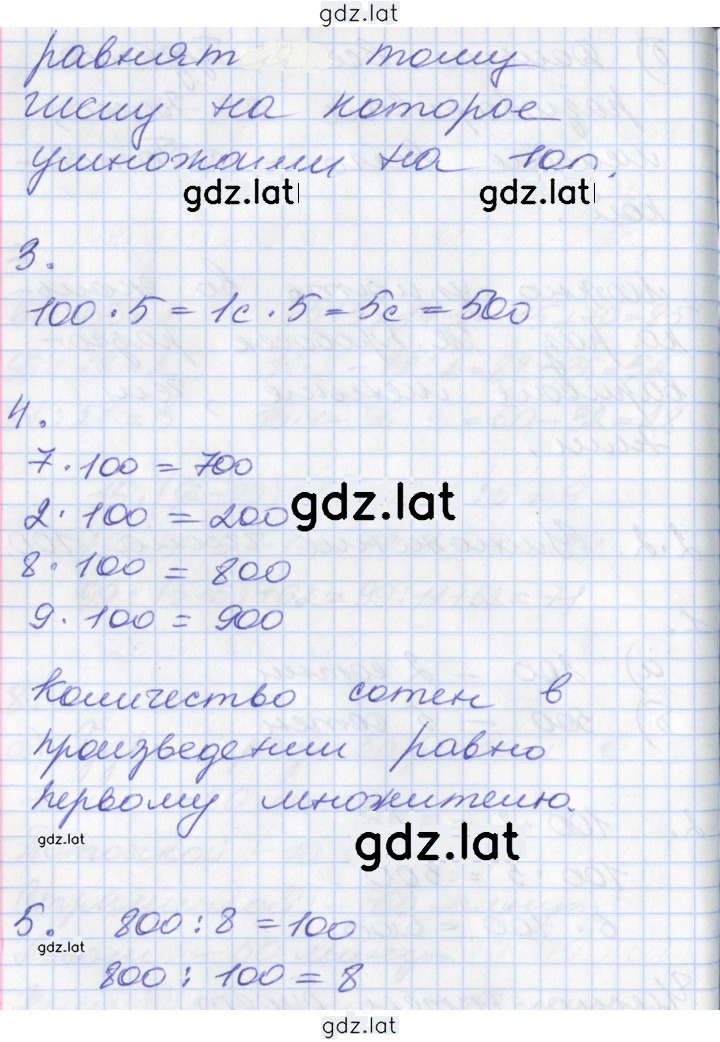 gdz.lat
равнят тому
числу на которое
умножали на 100.
gdz.lat gdz.lat
3.
100 · 5 = 1с · 5 = 5с = 500
4.
7 · 100 = 700
2 · 100 = 200
gdz.lat
8 · 100 = 800
9 · 100 = 900
Количество сотен в
произведении равно
первому множителю.
gdz.lat
gdz.lat
5. 800 : 8 = 100
gdz.lat
800 : 100 = 8
gdz.lat